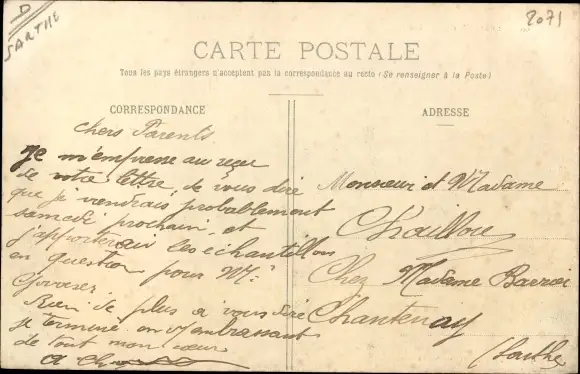 D
SARTHE
2071
CARTE POSTALE
Tous les pays étrangers n'acceptent pas la correspondance au recto (Se renseigner à la Poste)
CORRESPONDANCE
chers Parents
Je m'empresse au reçue
de votre lettre, de vous dire
que je viendrais probablement
samedi prochain, et
j'apporterai les échantillons
en question pour Mr
Rien de plus a vous dire
je termine en vous embrassant
de tout mon cœur
ADRESSE
Monsieur et Madame
Chaillou
Chez Madame
Chantenay
Sarthe